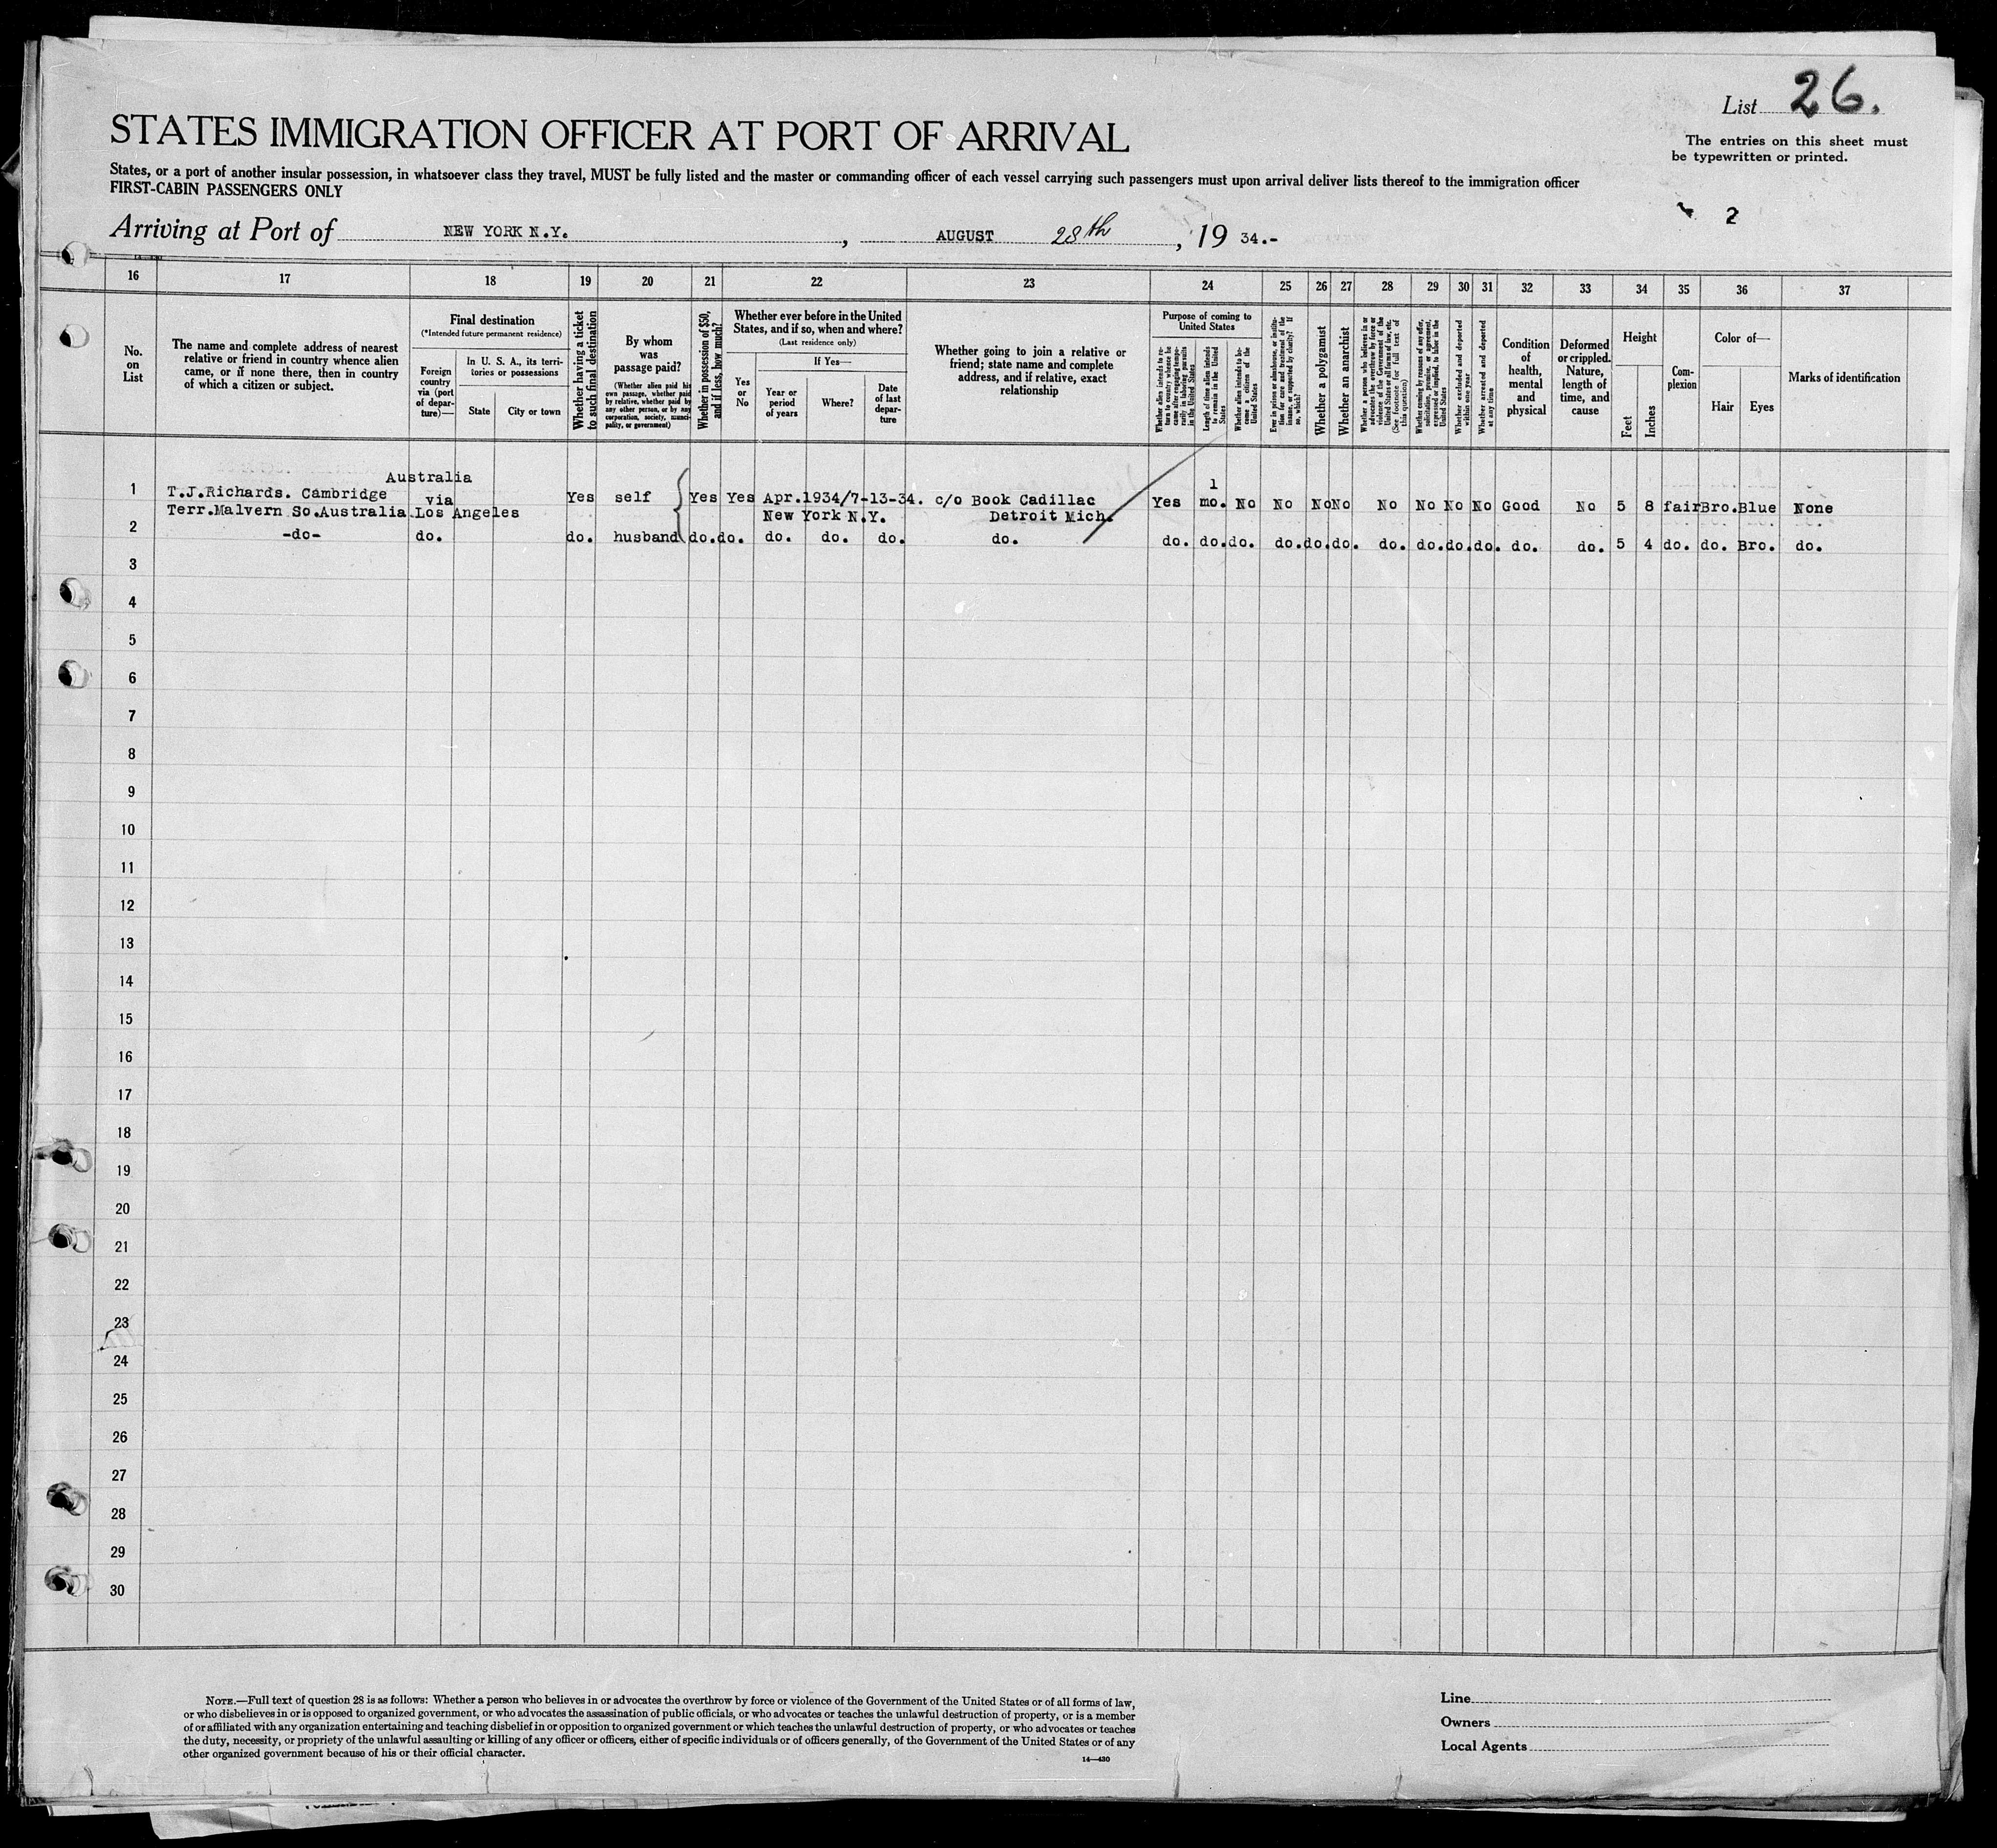 List 26.
STATES IMMIGRATION OFFICER AT PORT OF ARRIVAL
The entries on this sheet must
be typewritten or printed.
States, or a port of another insular possession, in whatsoever class they travel, MUST be fully listed and the master or commanding officer of each vessel carrying such passengers must upon arrival deliver lists thereof to the immigration officer
FIRST-CABIN PASSENGERS ONLY
2
Arriving at Port of NEW YORK N.Y. , AUGUST 28th , 19 34.-
16 17 18 19 20 21 22 23 24 25 26 27 28 29 30 31 32 33 34 35 36 37
No.
on
List
The name and complete address of nearest
relative or friend in country whence alien
came, or if none there, then in country
of which a citizen or subject.
Final destination
(*Intended future permanent residence)
Foreign
country
via (port
of depar-
ture)—
In U. S. A., its terri-
tories or possessions
State
City or town
Whether having a ticket
to such final destination
By whom
was
passage paid?
(Whether alien paid his
own passage, whether paid
by relative, whether paid by
any other person, or by any
corporation, society, munici-
pality, or government)
Whether in possession of $50,
and if less, how much?
Whether ever before in the United
States, and if so, when and where?
(Last residence only)
Yes
or
No
If Yes—
Year or
period
of years
Where?
Date
of last
depar-
ture
Whether going to join a relative or
friend; state name and complete
address, and if relative, exact
relationship
Purpose of coming to
United States
Whether alien intends to re-
turn to country whence he
came after engaging tempo-
rarily in laboring pursuits
in the United States
Length of time alien intends
to remain in the United
States
Whether alien intends to be-
come a citizen of the
United States
Ever in prison or almshouse, or institu-
tion for care and treatment of the
insane, or supported by charity? If
so, which?
Whether a polygamist
Whether an anarchist
Whether a person who believes in or
advocates the overthrow by force or
violence of the Government of the
United States or all forms of law, etc.
(See footnote for full text of
this question)
Whether coming by reasons of any offer,
solicitation, promise, or agreement,
expressed or implied, to labor in the
United States
Whether excluded and deported
within one year
Whether arrested and deported
at any time
Condition
of
health,
mental
and
physical
Deformed
or crippled.
Nature,
length of
time, and
cause
Height
Feet
Inches
Com-
plexion
Color of—
Hair
Eyes
Marks of identification
Australia
1 T.J.Richards. Cambridge via Yes self Yes Yes Apr.1934/7-13-34. c/o Book Cadillac Yes 1 mo. No No No No No No No No Good No 5 8 fair Bro. Blue None
Terr.Malvern So.Australia.Los Angeles New York N.Y. Detroit Mich.
2 -do- do. do. husband do. do. do. do. do. do. do. do. do. do. do. do. do. do. do. do. do. do. 5 4 do. do. Bro. do.
3
4
5
6
7
8
9
10
11
12
13
14
15
16
17
18
19
20
21
22
23
24
25
26
27
28
29
30
NOTE.—Full text of question 28 is as follows: Whether a person who believes in or advocates the overthrow by force or violence of the Government of the United States or of all forms of law,
or who disbelieves in or is opposed to organized government, or who advocates the assassination of public officials, or who advocates or teaches the unlawful destruction of property, or is a member
of or affiliated with any organization entertaining and teaching disbelief in or opposition to organized government or which teaches the unlawful destruction of property, or who advocates or teaches
the duty, necessity, or propriety of the unlawful assaulting or killing of any officer or officers, either of specific individuals or of officers generally, of the Government of the United States or of any
other organized government because of his or their official character.
14—430
Line
Owners
Local Agents